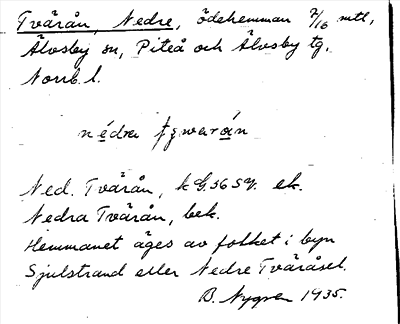 Tvärån, Nedre, ödehemman 7/16 mtl,
Älvsby sn, Piteå och Älvsby tg.
Norrb. l.
nédra tywarán
Ned. Tvärån, ek.
Nedra Tvärån, bek.
Hemmanet äges av folket i byn
Sjulstrand eller Nedre Tväråsel.
B. Nygren 1935.